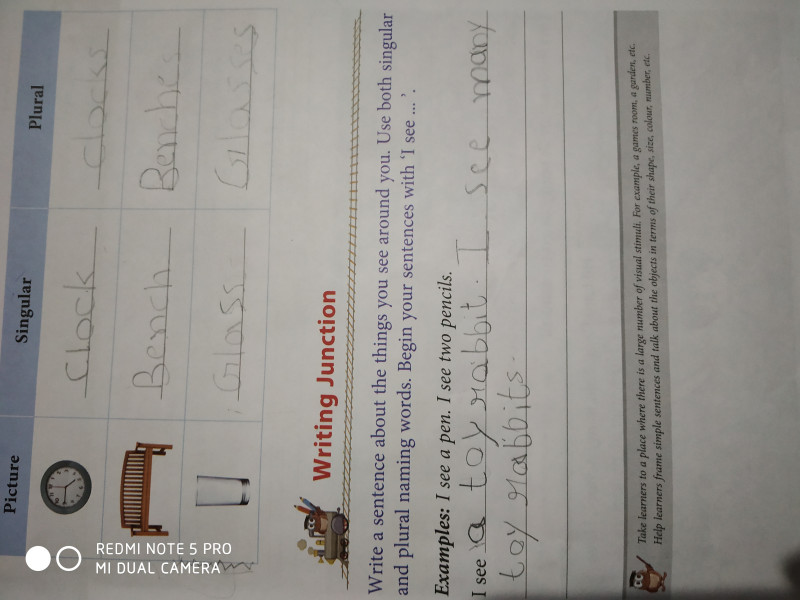 Picture Singular Plural
clock clocks
Bench Benches
Glass Glasses
Writing Junction
Write a sentence about the things you see around you. Use both singular
and plural naming words. Begin your sentences with 'I see ... '.
Examples: I see a pen. I see two pencils.
I see a toy rabbit. I see many
toy rabbits.
Take learners to a place where there is a large number of visual stimuli. For example, a games room, a garden, etc.
Help learners frame simple sentences and talk about the objects in terms of their shape, size, colour, number, etc.
REDMI NOTE 5 PRO
MI DUAL CAMERA